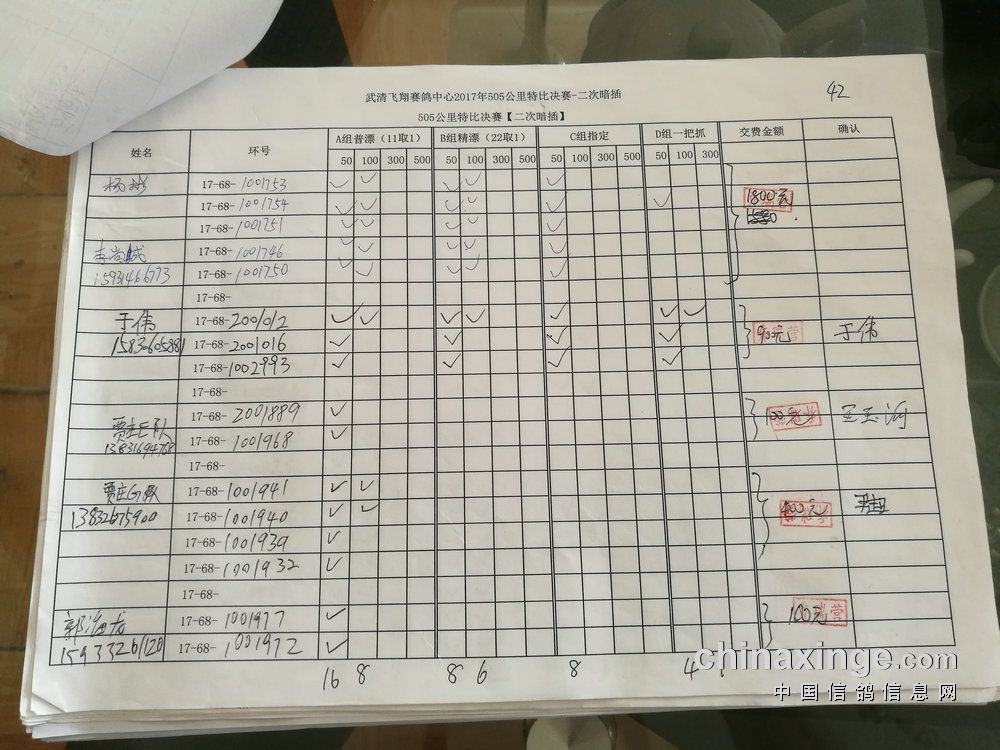 武清飞翔赛鸽中心2017年505公里特比决赛-二次暗插
42
505公里特比决赛【二次暗插】
姓名 环号 A组普漂（11取1） B组精漂（22取1） C组指定 D组一把抓 交费金额 确认
50 100 300 500 50 100 300 500 50 100 300 500 50 100 300
杨彬 17-68-1001753 ✓ ✓ ✓ ✓ ✓
17-68-1001754 ✓ ✓ ✓ ✓ ✓ ✓ 1800元
17-68-1001751 ✓ ✓ ✓ ✓ ✓
17-68-1001746 ✓ ✓ ✓ ✓ ✓
15931466773 17-68-1001750 ✓ ✓ ✓ ✓ ✓
17-68-
于伟 17-68-2001012 ✓ ✓ ✓ ✓ ✓ ✓ ✓
17-68-2001016 ✓ ✓ ✓ ✓ 900元 于伟
17-68-1002993 ✓ ✓ ✓ ✓
17-68-
17-68-2001889 ✓ 100元 王玉河
17-68-1001968 ✓
17-68-
17-68-1001941 ✓ ✓
13832675900 17-68-1001940 ✓ ✓ 400元
17-68-1001939 ✓
17-68-1001932 ✓
17-68-
郭海龙 17-68-1001977 ✓ 100元
15933261120 17-68-1001972 ✓
16 8 8 6 8 4 1
chinaxinge.com
中国信鸽信息网